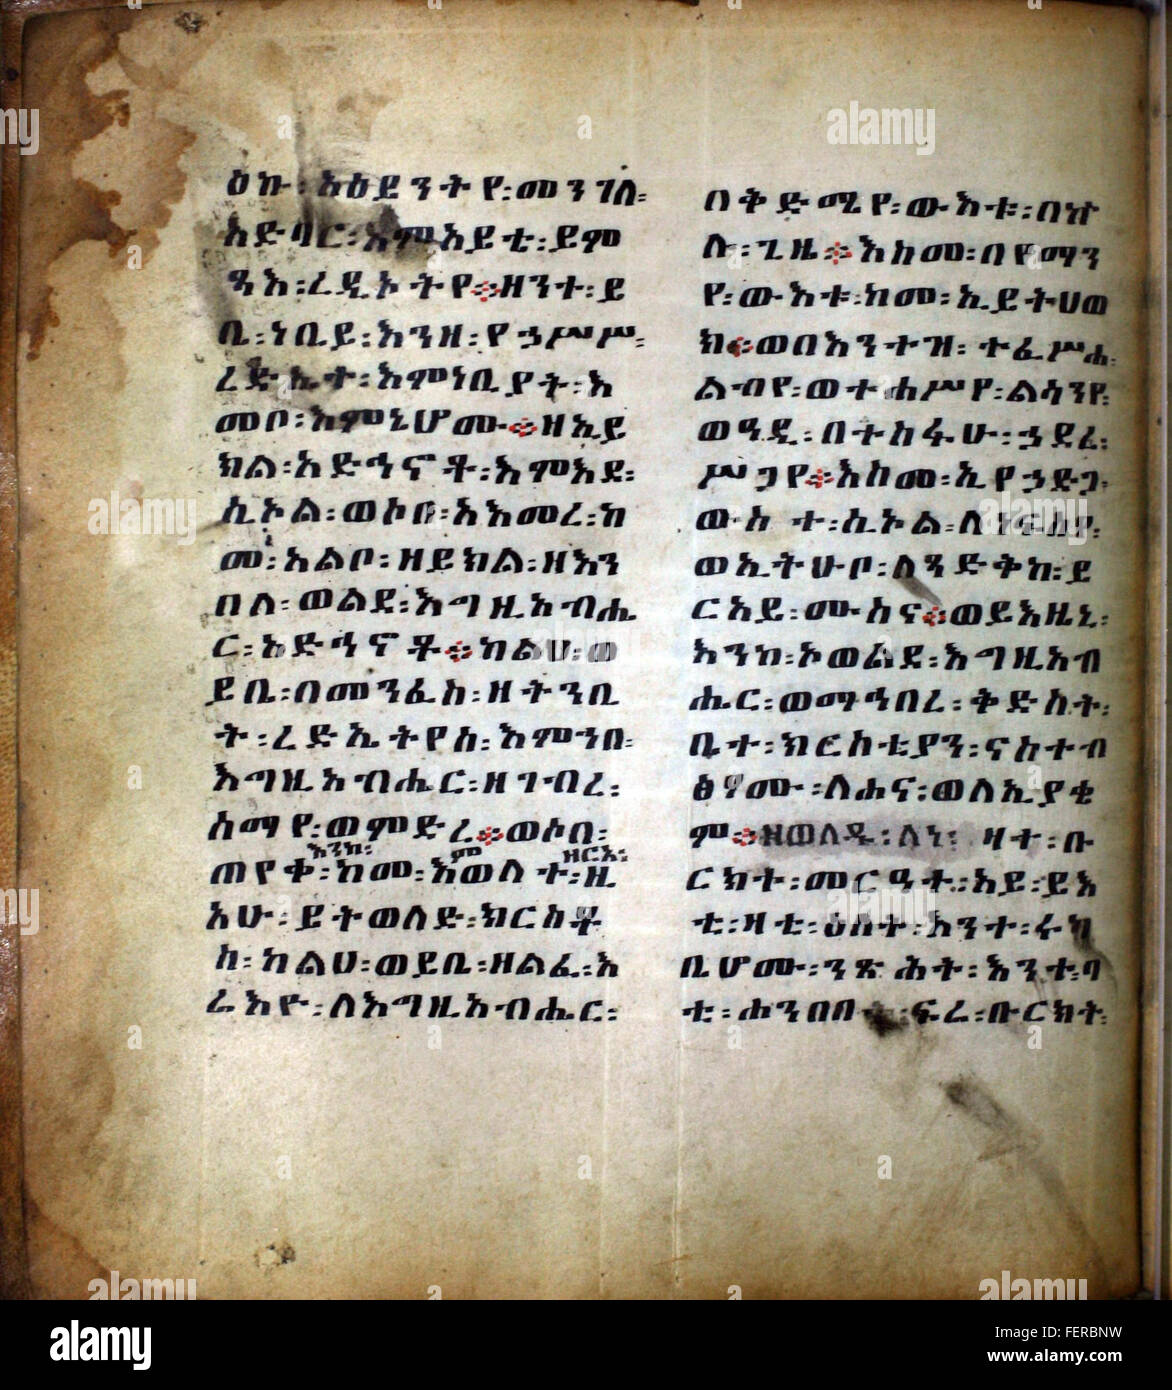 ዕኩ፡አዕይንትየ፡መንገለ፡
አድባር፡እምአይቴ፡ይም
ዓእ፡ረዲኦትየ፨ዘንተ፡ይ
ቤ፡ነቢይ፡እንዘ፡የኃሥሥ፡
ረድኤተ፡እምነቢያት፡እ
መቦ፡እምኔሆሙ፨ዘኢይ
ክል፡አድኅኖቶ፡እምእደ፡
ሲኦል፡ወሶበ፡አእመረ፡ከ
መ፡አልቦ፡ዘይክል፡ዘእን
በለ፡ወልደ፡እግዚአብሔ
ር፡አድኅኖቶ፨ከልሀ፡ወ
ይቤ፡በመንፈስ፡ዘትንቢ
ት፡ረድኤትየሰ፡እምኀበ፡
እግዚአብሔር፡ዘገብረ፡
ሰማየ፡ወምድረ፨ወሶበ፡
እንከ፡ ም ዘርእ፡
ጠየቀ፡ከመ፡እወለተ፡ዚ
አሁ፡ይትወለድ፡ክርስቶ
ስ፡ከልሀ፡ወይቤ፡ዘልፈ፡እ
ሬእዮ፡ለእግዚአብሔር፡
በቅድሜየ፡ውእቱ፡በኵ
ሉ፡ጊዜ፨እስመ፡በየማን
የ፡ውእቱ፡ከመ፡ኢይትሀወ
ክ፨ወበእንተዝ፡ተፈሥሐ፡
ልብየ፡ወተሐሥየ፡ልሳንየ፡
ወዓዲ፡በተስፋሁ፡ኃደረ፡
ሥጋየ፨እስመ፡ኢየኃድጋ፡
ውስተ፡ሲኦል፡ለነፍስየ፡
ወኢትሁቦ፡ለጻድቅከ፡ይ
ርአይ፡ሙስና፨ወይእዜኒ፡
አንከ፡ኦወልደ፡እግዚአብ
ሔር፡ወማኅበረ፡ቅድስት፡
ቤተ፡ክርስቲያን፡ናስተብ
ፅዖሙ፡ለሐና፡ወለኢያቄ
ም፨ዘወለዱ፡ለነ፡ዛተ፡ቡ
ርክተ፡መርዓት፡አይ፡ይእ
ቲ፡ዛቲ፡ዕለት፡እንተ፡ሩካ
ቤሆሙ፡ንጽሕት፡እንተ፡ባ
ቲ፡ሐንበበ፡ፍሬ፡ቡርክት፡
alamy
alamy stock photo
FERBNW
www.alamy.com